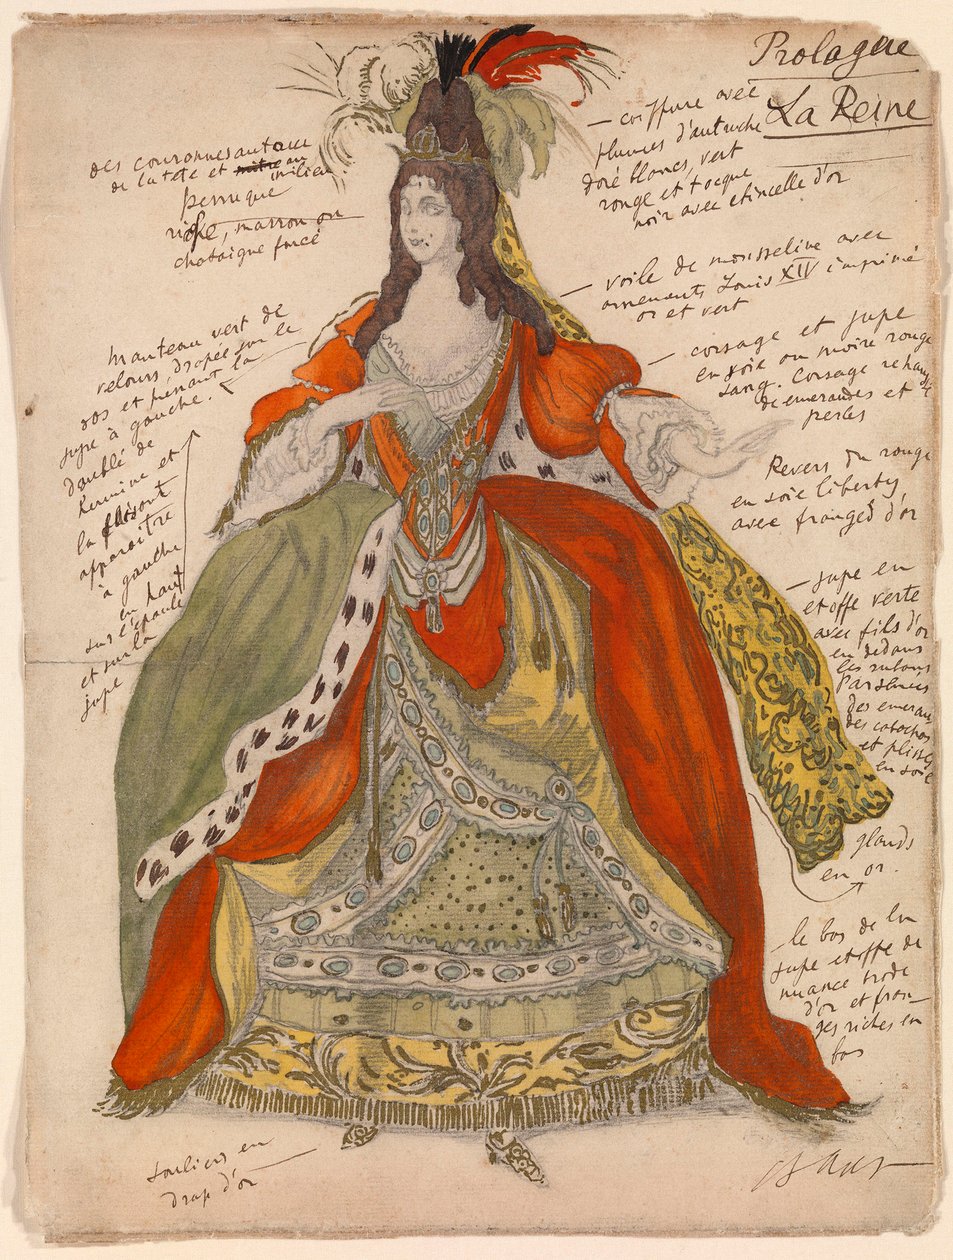 Prologue
La Reine
des couronnes autour
de la tete et au milieu
perruque
riche, marron ou
chataigne foncé
— coiffure avec
plumes d'autruche
doré blancs, vert
rouge et tocque
noir avec etincelle d'or
— voile de mousseline avec
ornements Louis XIV imprimé
or et vert
— corsage et jupe
en soie ou moire rouge
sang. Corsage
de emeraudes et
perles
Revers du rouge
en soie liberty,
avec franges d'or
— jupe en
etoffe verte
avec fils d'or
en dedans
les rubans
des
et plissé
en soie
glands
en or.
— le bas de la
jupe etoffe de
nuance
d'or et fran-
ges riches en
bas
manteau vert de
velours, drapée sur le
dos et prenant la
jupe à gauche.
doublé de
hermine et
la faisant
apparaitre
à gauche
en haut
sur l'épaule
et sur la
jupe
souliers en
drap d'or
Bakst